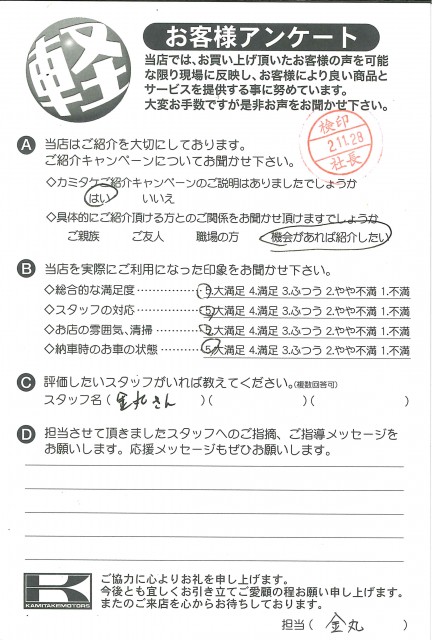 軽
お客様アンケート
当店では、お買い上げ頂いたお客様の声を可能
な限り現場に反映し、お客様により良い商品と
サービスを提供する事に努めています。
大変お手数ですが是非お声をお聞かせ下さい。
検印
2.11.28
社長
A 当店はご紹介を大切にしております。
ご紹介キャンペーンについてお聞かせ下さい。
◇カミタケご紹介キャンペーンのご説明はありましたでしょうか
はい いいえ
◇具体的にご紹介頂ける方とのご関係をお聞かせ頂けますでしょうか
ご親族 ご友人 職場の方 機会があれば紹介したい
B 当店を実際にご利用になった印象をお聞かせ下さい。
◇総合的な満足度……………5.大満足 4.満足 3.ふつう 2.やや不満 1.不満
◇スタッフの対応……………5.大満足 4.満足 3.ふつう 2.やや不満 1.不満
◇お店の雰囲気、清掃…………5.大満足 4.満足 3.ふつう 2.やや不満 1.不満
◇納車時のお車の状態…………5.大満足 4.満足 3.ふつう 2.やや不満 1.不満
C 評価したいスタッフがいれば教えてください。(複数回答可)
スタッフ名 ( 金丸さん )( )( )
D 担当させて頂きましたスタッフへのご指摘、ご指導メッセージを
お願いします。応援メッセージもぜひお願いします。
K
KAMITAKEMOTORS
ご協力に心よりお礼を申し上げます。
今後とも宜しくお引き立てご愛顧の程お願い申し上げます。
またのご来店を心からお待ちしております。
担当 ( 金丸 )